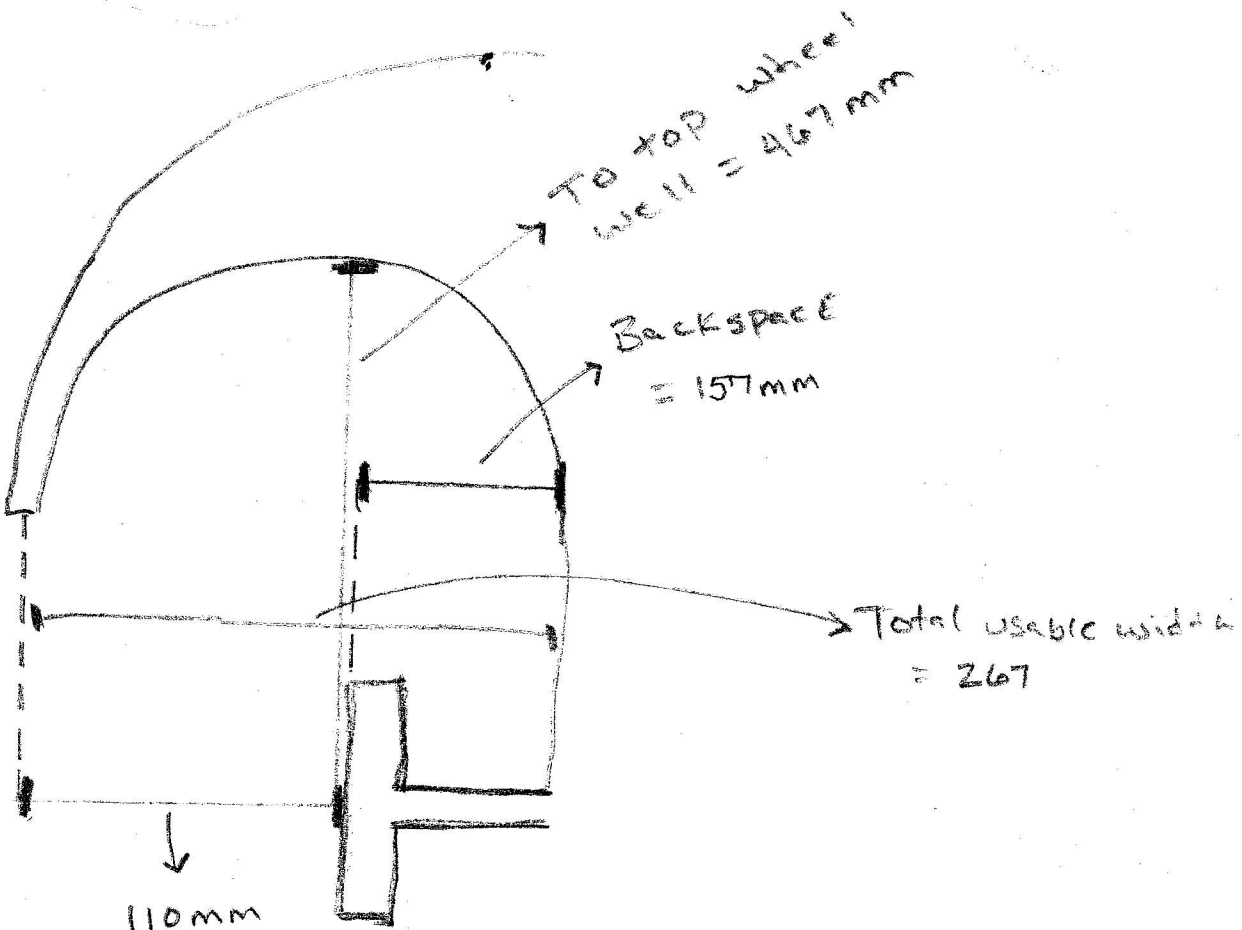 To top wheel
well = 467mm
Backspace
= 157mm
Total usable width
= 267
110mm